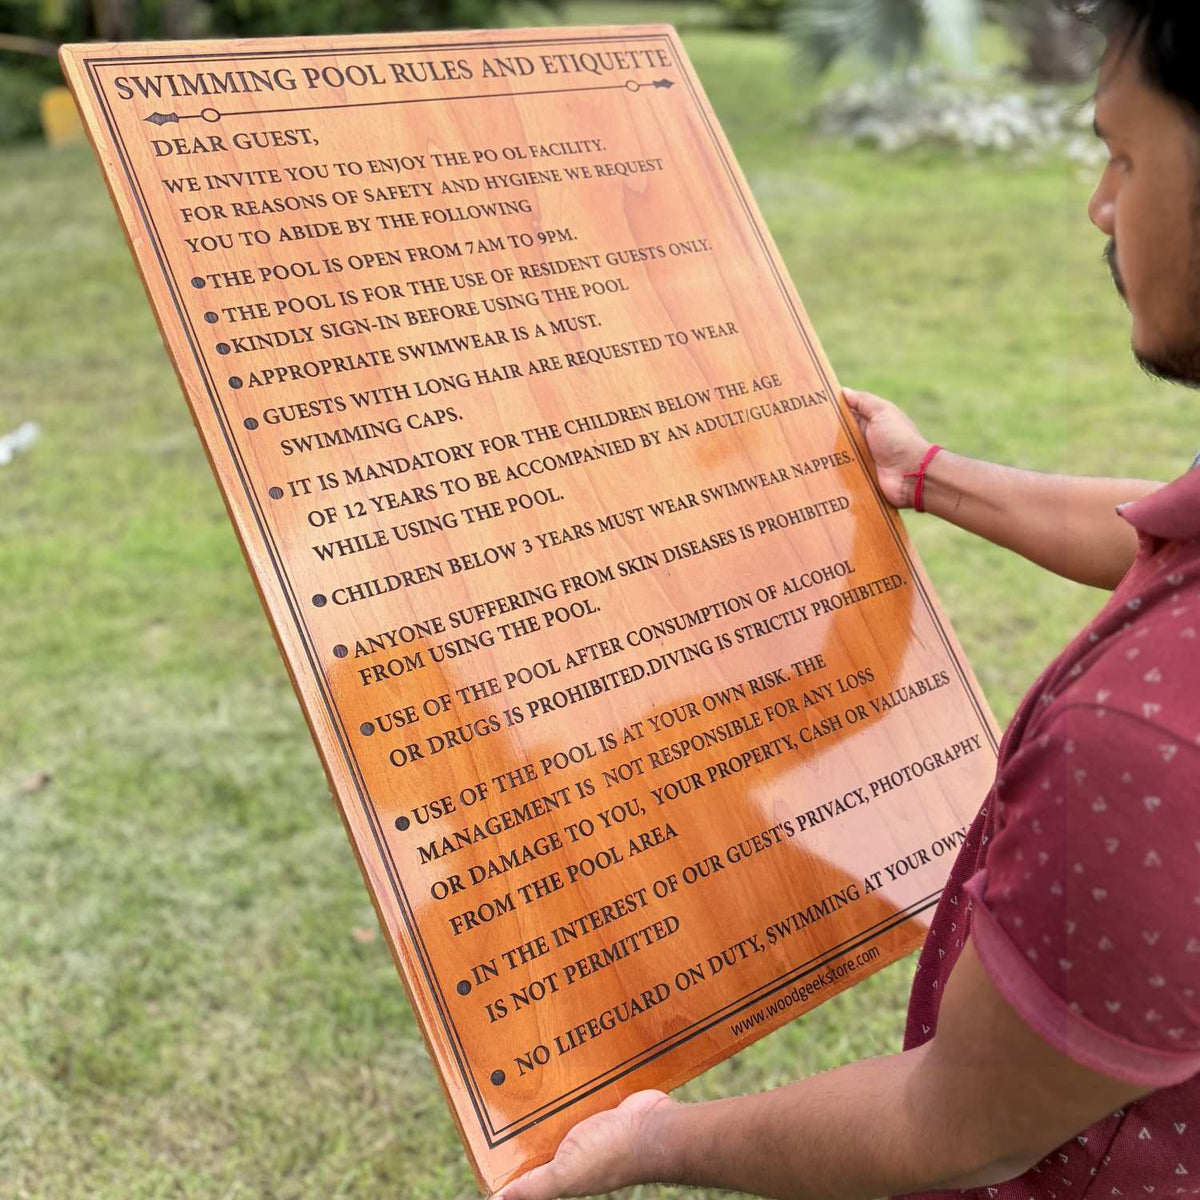 SWIMMING POOL RULES AND ETIQUETTE
DEAR GUEST,
WE INVITE YOU TO ENJOY THE PO OL FACILITY.
FOR REASONS OF SAFETY AND HYGIENE WE REQUEST
YOU TO ABIDE BY THE FOLLOWING
●THE POOL IS OPEN FROM 7AM TO 9PM.
● THE POOL IS FOR THE USE OF RESIDENT GUESTS ONLY.
●KINDLY SIGN-IN BEFORE USING THE POOL
● APPROPRIATE SWIMWEAR IS A MUST.
● GUESTS WITH LONG HAIR ARE REQUESTED TO WEAR
SWIMMING CAPS.
● IT IS MANDATORY FOR THE CHILDREN BELOW THE AGE
OF 12 YEARS TO BE ACCOMPANIED BY AN ADULT/GUARDIAN
WHILE USING THE POOL.
● CHILDREN BELOW 3 YEARS MUST WEAR SWIMWEAR NAPPIES.
● ANYONE SUFFERING FROM SKIN DISEASES IS PROHIBITED
FROM USING THE POOL.
●USE OF THE POOL AFTER CONSUMPTION OF ALCOHOL
OR DRUGS IS PROHIBITED.DIVING IS STRICTLY PROHIBITED.
● USE OF THE POOL IS AT YOUR OWN RISK. THE
MANAGEMENT IS NOT RESPONSIBLE FOR ANY LOSS
OR DAMAGE TO YOU, YOUR PROPERTY, CASH OR VALUABLES
FROM THE POOL AREA
●IN THE INTEREST OF OUR GUEST'S PRIVACY, PHOTOGRAPHY
IS NOT PERMITTED
● NO LIFEGUARD ON DUTY, SWIMMING AT YOUR OWN
www.woodgeekstore.com